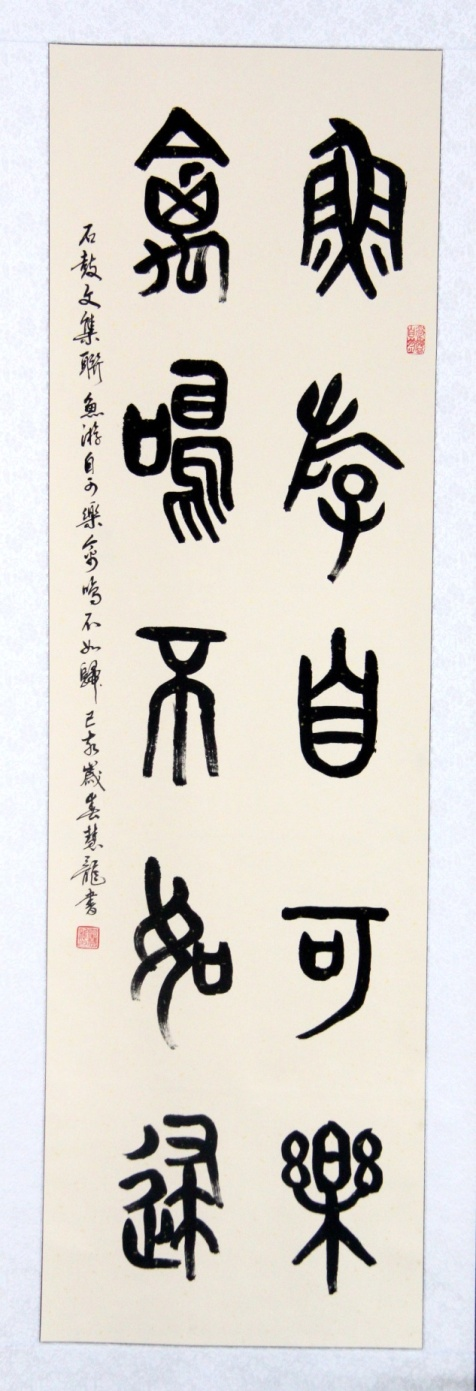 魚斿自可樂
禽鳴不如歸
石鼓文集聯 魚游自可樂 禽鳴不如歸 己亥歲春慧龍書